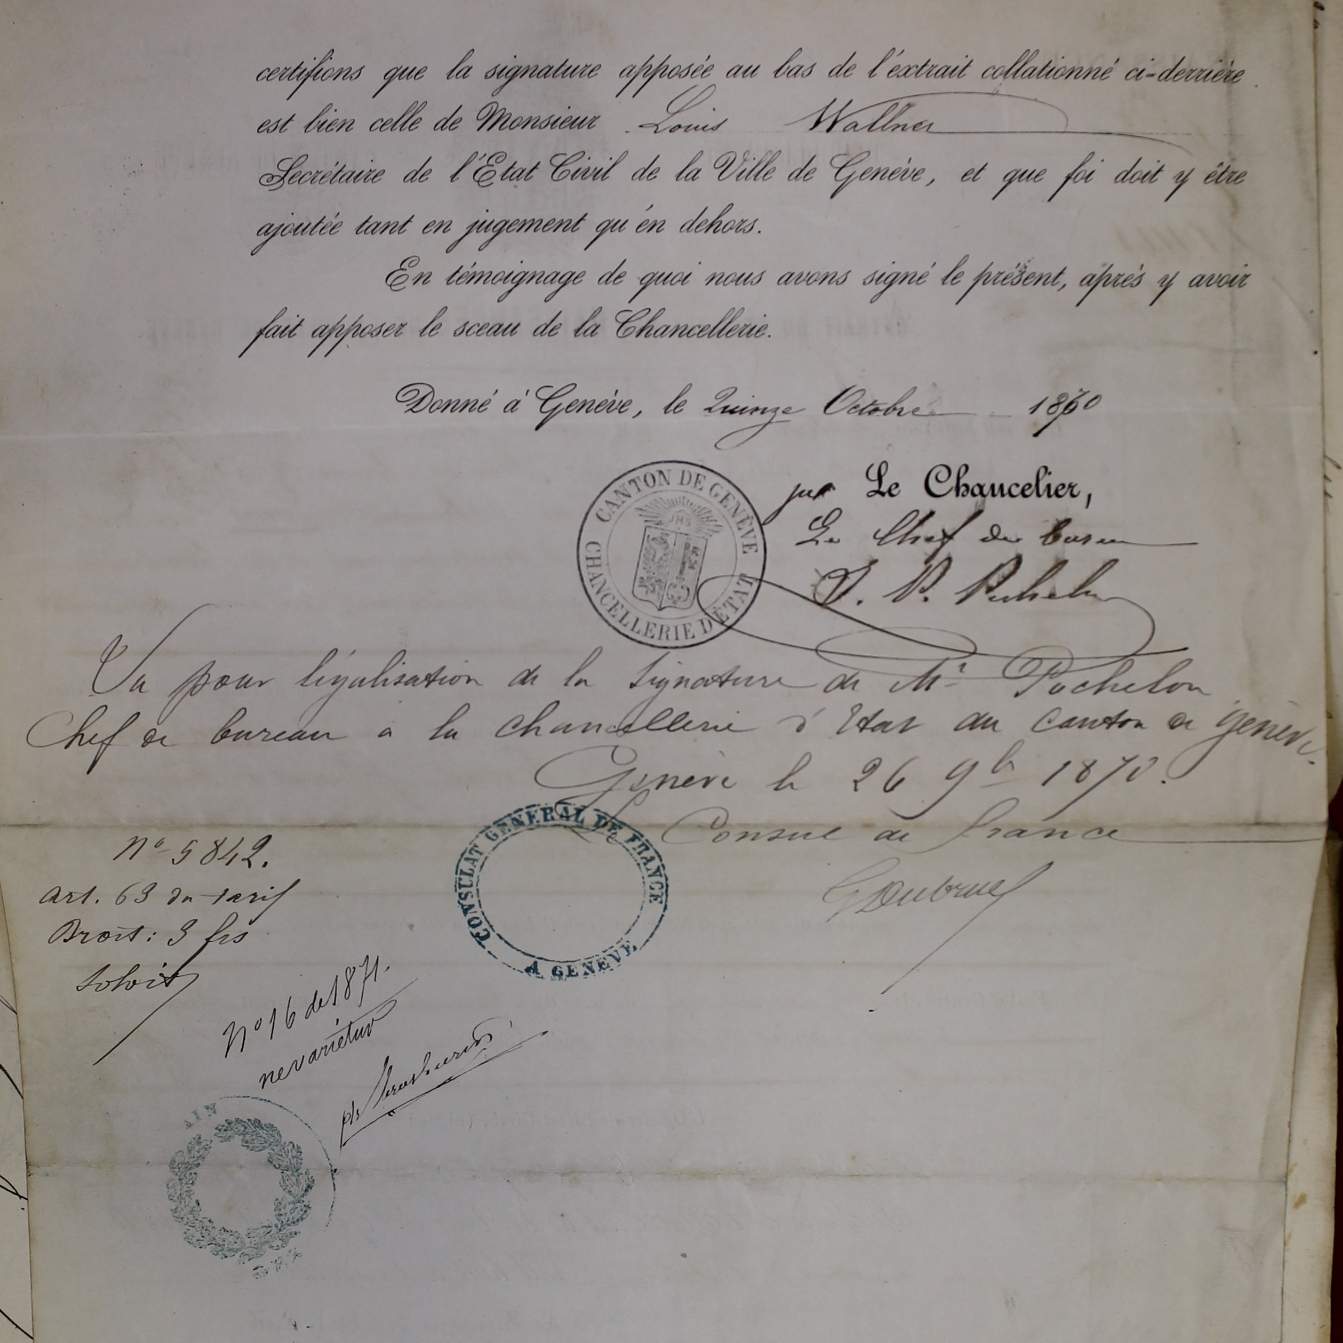 certifions que la signature apposée au bas de l'éxtrait collationné ci-derrière
est bien celle de Monsieur Louis Wallner
Secrétaire de l'Etat Civil de la Ville de Genève, et que foi doit y être
ajoutée tant en jugement qu'én dehors.
En témoignage de quoi nous avons signé le présent, après y avoir
fait apposer le sceau de la Chancellerie.
Donné à Genève, le Quinze Octobre 1870
CANTON DE GENÈVE
CHANCELLERIE D'ÉTAT
JHS
pur Le Chancelier,
Le Chef de bureau
Vu pour légalisation de la signature de Mr Pochelon
Chef de bureau à la chancellerie d'Etat du Canton de Genève.
Genève le 26 9b 1870.
Le Consul de France
CONSULAT GENERAL DE FRANCE
A GENÈVE
No 5842.
art. 63 du tarif
Droit: 3 frs
No 16 de 1871.
ne varietur
AIN